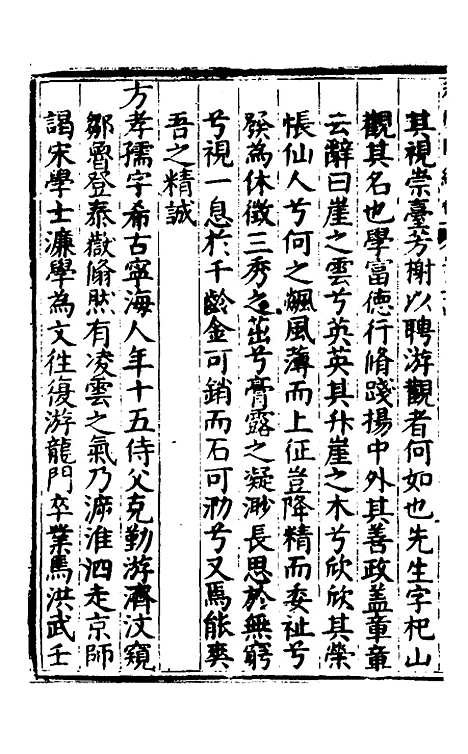 其視崇臺芳榭以聘游觀者何如也先生字杞山
觀其名也學富德行脩踐揚中外其善政盖章章
云辭曰崖之雲兮英英其升崖之木兮欣欣其榮
悵仙人兮何之飊風薄而上征豈降精而委祉兮
發為休徵三秀之茁兮膏露之凝渺長思於無窮
兮視一息於千齡金可銷而石可泐兮又焉能爽
吾之精誠
方孝孺字希古寧海人年十五侍父克勤游濟汶窺
鄒魯登泰嶽翛然有凌雲之氣乃泝淮泗走京師
謁宋學士濂學為文徃復游龍門卒業焉洪武壬